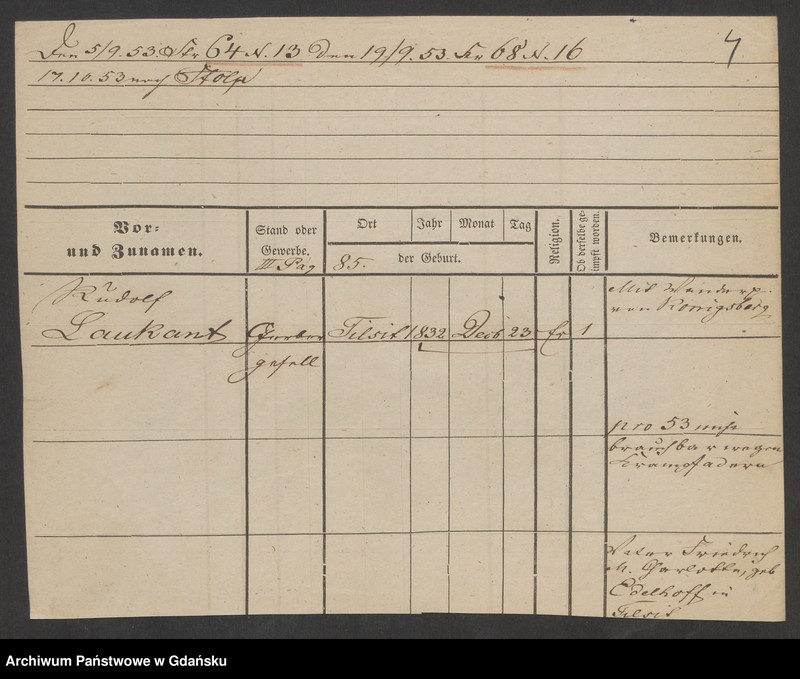 Den 5/9. 53. Str 64 N. 13 Den 19/9. 53. Str 68 N. 16
7
17. 10. 53 nach Stolp
Vor-
und Zunamen.
Stand oder
Gewerbe.
III Pag
Ort
Jahr
Monat
Tag
85.
der Geburt.
Religion.
Ob derselbe ge-
impft worden.
Bemerkungen.
Rudolf
Laukant
Gerber
gesell
Tilsit
1832
Decb
23
Ev
1
Mit Wanderp.
von Königsberg
pro 53 unbr
brauchbar wegen
Krampfadern
Vater Friedrich
M. Charlotte, geb
Edelhoff in
Tilsit
Archiwum Państwowe w Gdańsku